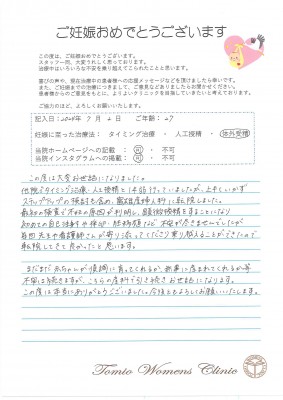 ご妊娠おめでとうございます
この度は、ご妊娠おめでとうございます。
スタッフ一同、大変うれしく思っております。
治療中はいろいろな不安を乗り越えてこられたことと思います。
喜びの声や、現在治療中の患者様への応援メッセージなどを頂けましたら幸いです。
また、ご妊娠までの治療につきまして、ご意見などありましたらお聞かせください。
患者様からのご意見をもとに、よりよいクリニックを目指していきたいと考えております。
ご協力のほど、よろしくお願いいたします。
記入日:2024年 7月 2日 ご年齢:27
妊娠に至った治療法: タイミング治療 ・ 人工授精 ・ 体外受精
当院ホームページへの記載: 可 ・ 不可
当院インスタグラムへの掲載: 可 ・ 不可
この度は大変お世話になりました。
他院でタイミング治療・人工授精を1年弱行っていましたが、上手くいかず
ステップアップの検討も含め、富江産婦人科に転院しました。
最初の検査で不妊の原因が判明し、顕微授精をすることになり
初めての自己注射や採卵・胚移植など不安が尽きませんでしたが
毎回先生や看護師さんが寄り添ってくださり乗り越えることができたので
転院してきて良かったと思います。
まだまだ赤ちゃんが順調に育ってくれるか、無事に産まれてくれるか等
不安は続きますが、こちらの産科で引き続きお世話になります。
この度は本当にありがとうございました。今後ともよろしくお願いいたします。
Tomie Womens Clinic